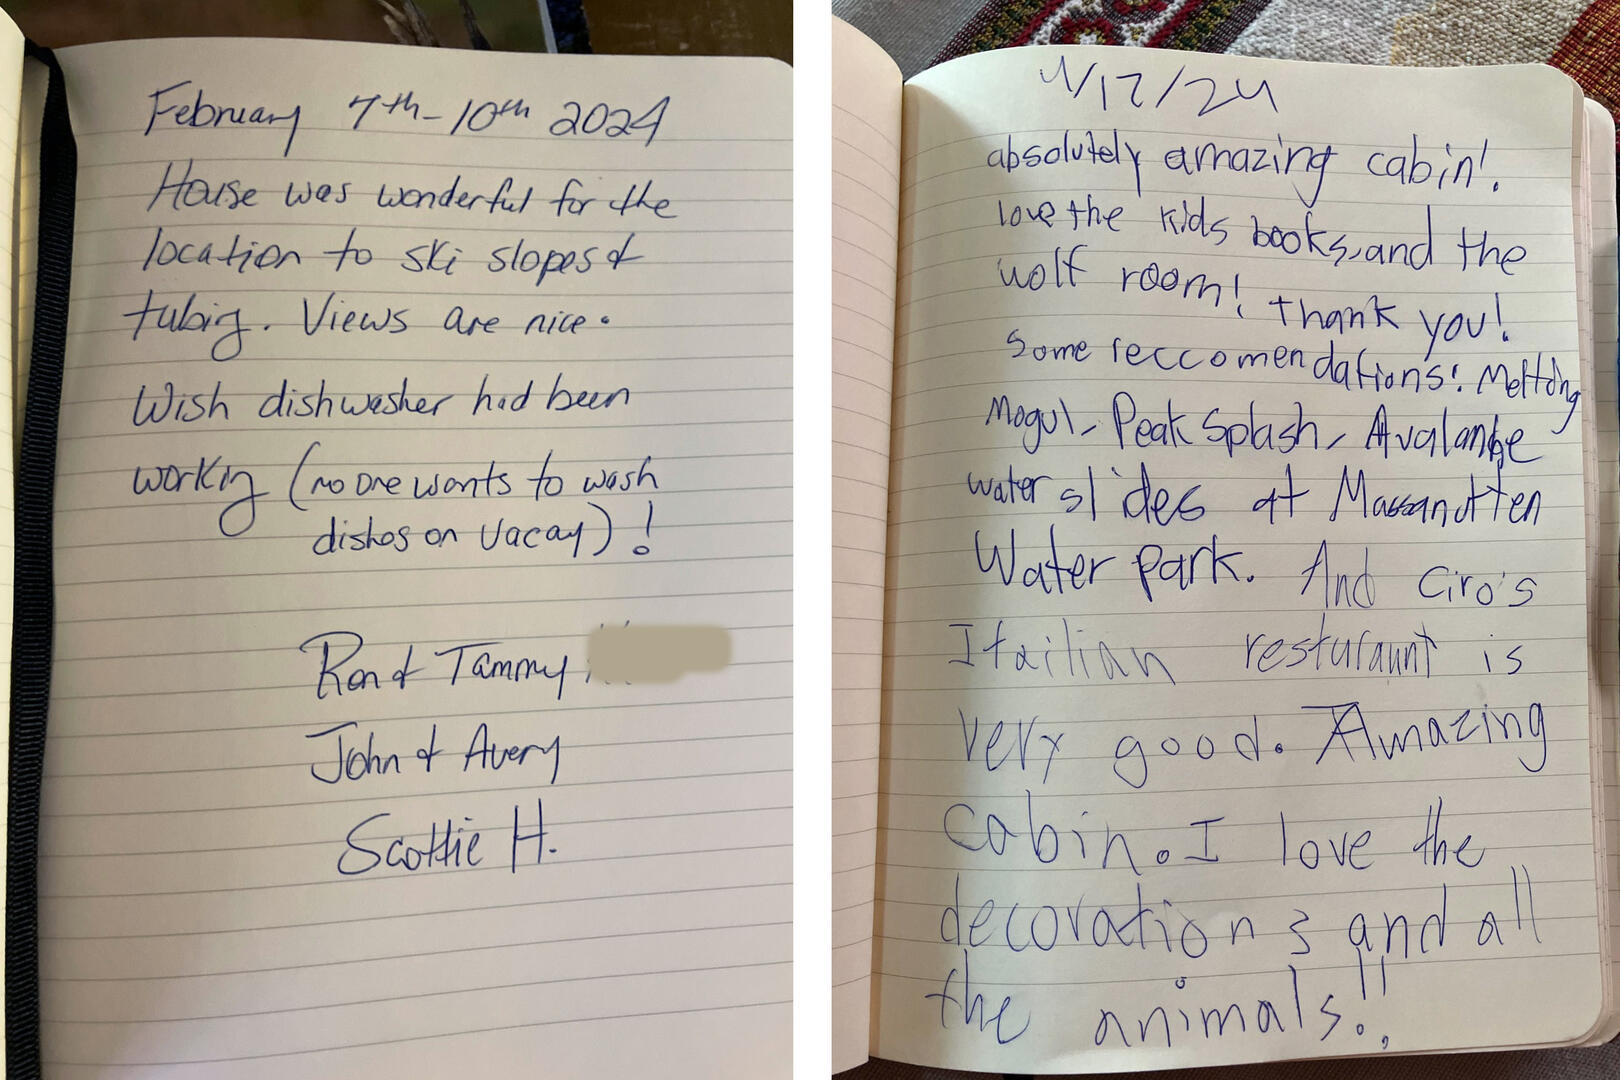 February 7th-10th 2024
House was wonderful for the
location to ski slopes &
tubing. Views are nice.
Wish dishwasher had been
working (no one wants to wash
dishes on vacay)!
Ron & Tammy
John & Avery
Scottie H.
4/12/24
absolutely amazing cabin!
love the kids books, and the
wolf room! thank you!
Some reccomendations: Melting
Mogul, Peak Splash, Avalanche
water slides at Massanutten
Water park. And Ciro's
Itailian resturaunt is
very good. Amazing
cabin. I love the
decorations and all
the animals!!